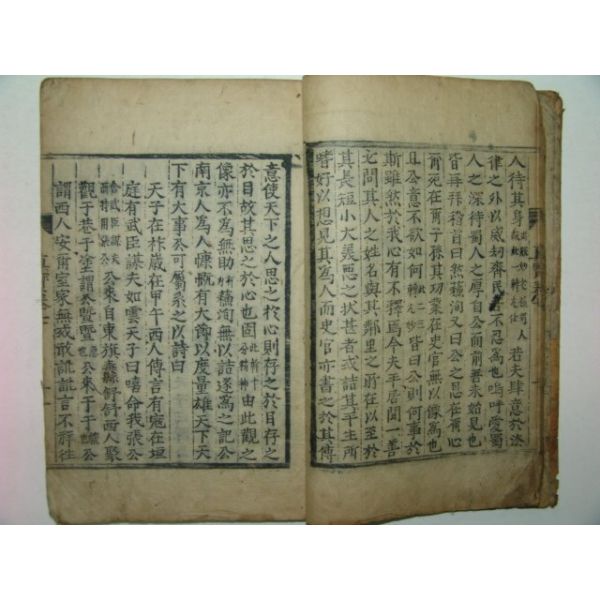 人待其身若夫肆意於法
律之外以威劫齊民吾不忍爲也嗚呼愛蜀
人之深待蜀人之厚自公而前吾未始見也
皆再拜稽首曰然蘓洵又曰公之恩在爾心
爾死在爾子孫其功業在史官無以像爲也
且公意不欲如何皆曰公則何事於
斯雖然於我心有不釋焉今夫平居聞一善
必問其人之姓名與其鄰里之所在以至於
其長短小大美惡之狀甚者或詰其平生所
嗜好以想見其爲人而史官亦書之於其傳
意使天下之人思之於心則存之於目存之
於目故其思之於心也固由此觀之
像亦不爲無助蘓洵無以詰遂爲之記公
南京人爲人慷慨有大節以度量雄天下天
下有大事公可屬系之以詩曰
天子在祚歲在甲午西人傳言有寇在垣
庭有武臣謀夫如雲天子曰嘻命我張公
公來自東旗纛舒舒西人聚
觀于巷于塗謂公暨暨公來于于公
謂西人安爾室家無或敢訛訛言不祥往